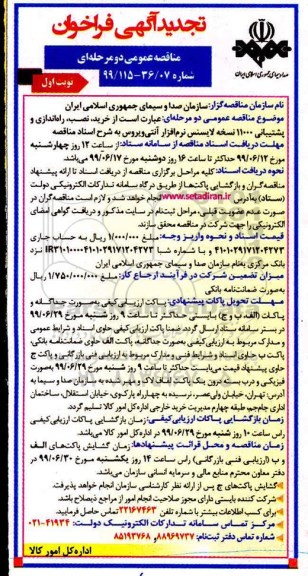 تجدید آگهی فراخوان
مناقصه عمومی دو مرحله‌ای
شماره ۹۹/۱۱۵-۳۶/۰۷
نوبت اول
صدا و سیمای جمهوری اسلامی ایران
نام سازمان مناقصه‌گزار: سازمان صدا و سیمای جمهوری اسلامی ایران
موضوع مناقصه عمومی دو مرحله‌ای: عبارت است از خرید، نصب، راه‌اندازی و
پشتیبانی ۱۱۰۰۰ نسخه لایسنس نرم‌افزار آنتی‌ویروس به شرح اسناد مناقصه
مهلت دریافت اسناد مناقصه از سامانه ستاد: از ساعت ۱۲ روز چهارشنبه
مورخ ۹۹/۰۶/۱۲ حداکثر تا ساعت ۱۶ روز دوشنبه مورخ ۹۹/۰۶/۱۷ می‌باشد.
نحوه دریافت اسناد: کلیه مراحل برگزاری مناقصه از دریافت اسناد تا ارائه پیشنهاد
مناقصه‌گران و بازگشایی پاکت‌ها از طریق درگاه سامانه تدارکات الکترونیکی دولت
(ستاد) به آدرس www.setadiran.ir انجام خواهد شد و لازم است مناقصه‌گران در
صورت عدم عضویت قبلی، مراحل ثبت‌نام در سایت مذکور و دریافت گواهی امضای
الکترونیکی را جهت شرکت در مناقصه محقق سازند.
قیمت اسناد و نحوه واریز وجه: مبلغ ۱/۰۰۰/۰۰۰ ریال به حساب جاری
بانک مرکزی به‌نام سازمان صدا و سیمای جمهوری اسلامی ایران
میزان تضمین شرکت در فرآیند ارجاع کار: مبلغ ۱/۷۵۰/۰۰۰/۰۰۰ ریال
به صورت ضمانت‌نامه بانکی
مهلت تحویل پاکات پیشنهادی: پاکت ارزیابی کیفی به‌صورت جداگانه و
پاکات (الف و ب و ج) بایستی حداکثر تا ساعت ۹ روز شنبه مورخ ۹۹/۰۶/۲۹
در بستر سامانه ستاد ارسال گردد. ضمنا پاکت ارزیابی کیفی حاوی اسناد و شرایط عمومی
و مدارک مربوط به ارزیابی کیفی به‌صورت جداگانه، پاکت الف حاوی ضمانت‌نامه بانکی،
پاکت ب حاوی اسناد و شرایط فنی و مدارک مربوط به ارزیابی فنی بازرگانی و پاکت ج
حاوی پیشنهاد قیمت می‌بایست حداکثر تا ساعت ۹ روز شنبه مورخ ۹۹/۰۶/۲۹ به‌صورت
فیزیکی و درب بسته درون یک پاکت لفاف لاک و مهر شده به سازمان صدا و سیما به
آدرس: تهران، خیابان ولی‌عصر، نرسیده به چهارراه پارک‌وی، خیابان استقلال، ساختمان
اداری جام‌جم، طبقه چهارم مدیریت خرید خارجی اداره کل امور کالا تسلیم گردد.
زمان بازگشایی پاکات ارزیابی کیفی: زمان بازگشایی پاکات ارزیابی کیفی
راس ساعت ۱۰ روز شنبه مورخ ۹۹/۰۶/۲۹ در اداره کل امور کالا می‌باشد.
زمان مناقصه و محل قرائت پیشنهادها: زمان گشایش پاکت‌های الف
و ب (ارزیابی فنی بازرگانی) راس ساعت ۱۴ روز یکشنبه مورخ ۹۹/۰۶/۳۰ در
دفتر معاون محترم منابع مالی و سرمایه انسانی سازمان می‌باشد.
گشایش پاکت‌های ج پس از ارائه نظر کارشناسی سازمان انجام خواهد پذیرفت.
شرکت کننده بایستی دارای مجوز صلاحیت انجام امور از مراجع ذیصلاح باشد.
برای کسب اطلاعات بیشتر با شماره تلفن ۲۲۱۶۷۴۶۳ تماس حاصل فرمایید.
مرکز تماس سامانه تدارکات الکترونیک دولت: ۰۲۱-۴۱۹۳۴
شماره تماس دفتر ثبت‌نام: ۸۸۹۶۹۷۳۷ و ۸۵۱۹۳۷۶۸
اداره کل امور کالا